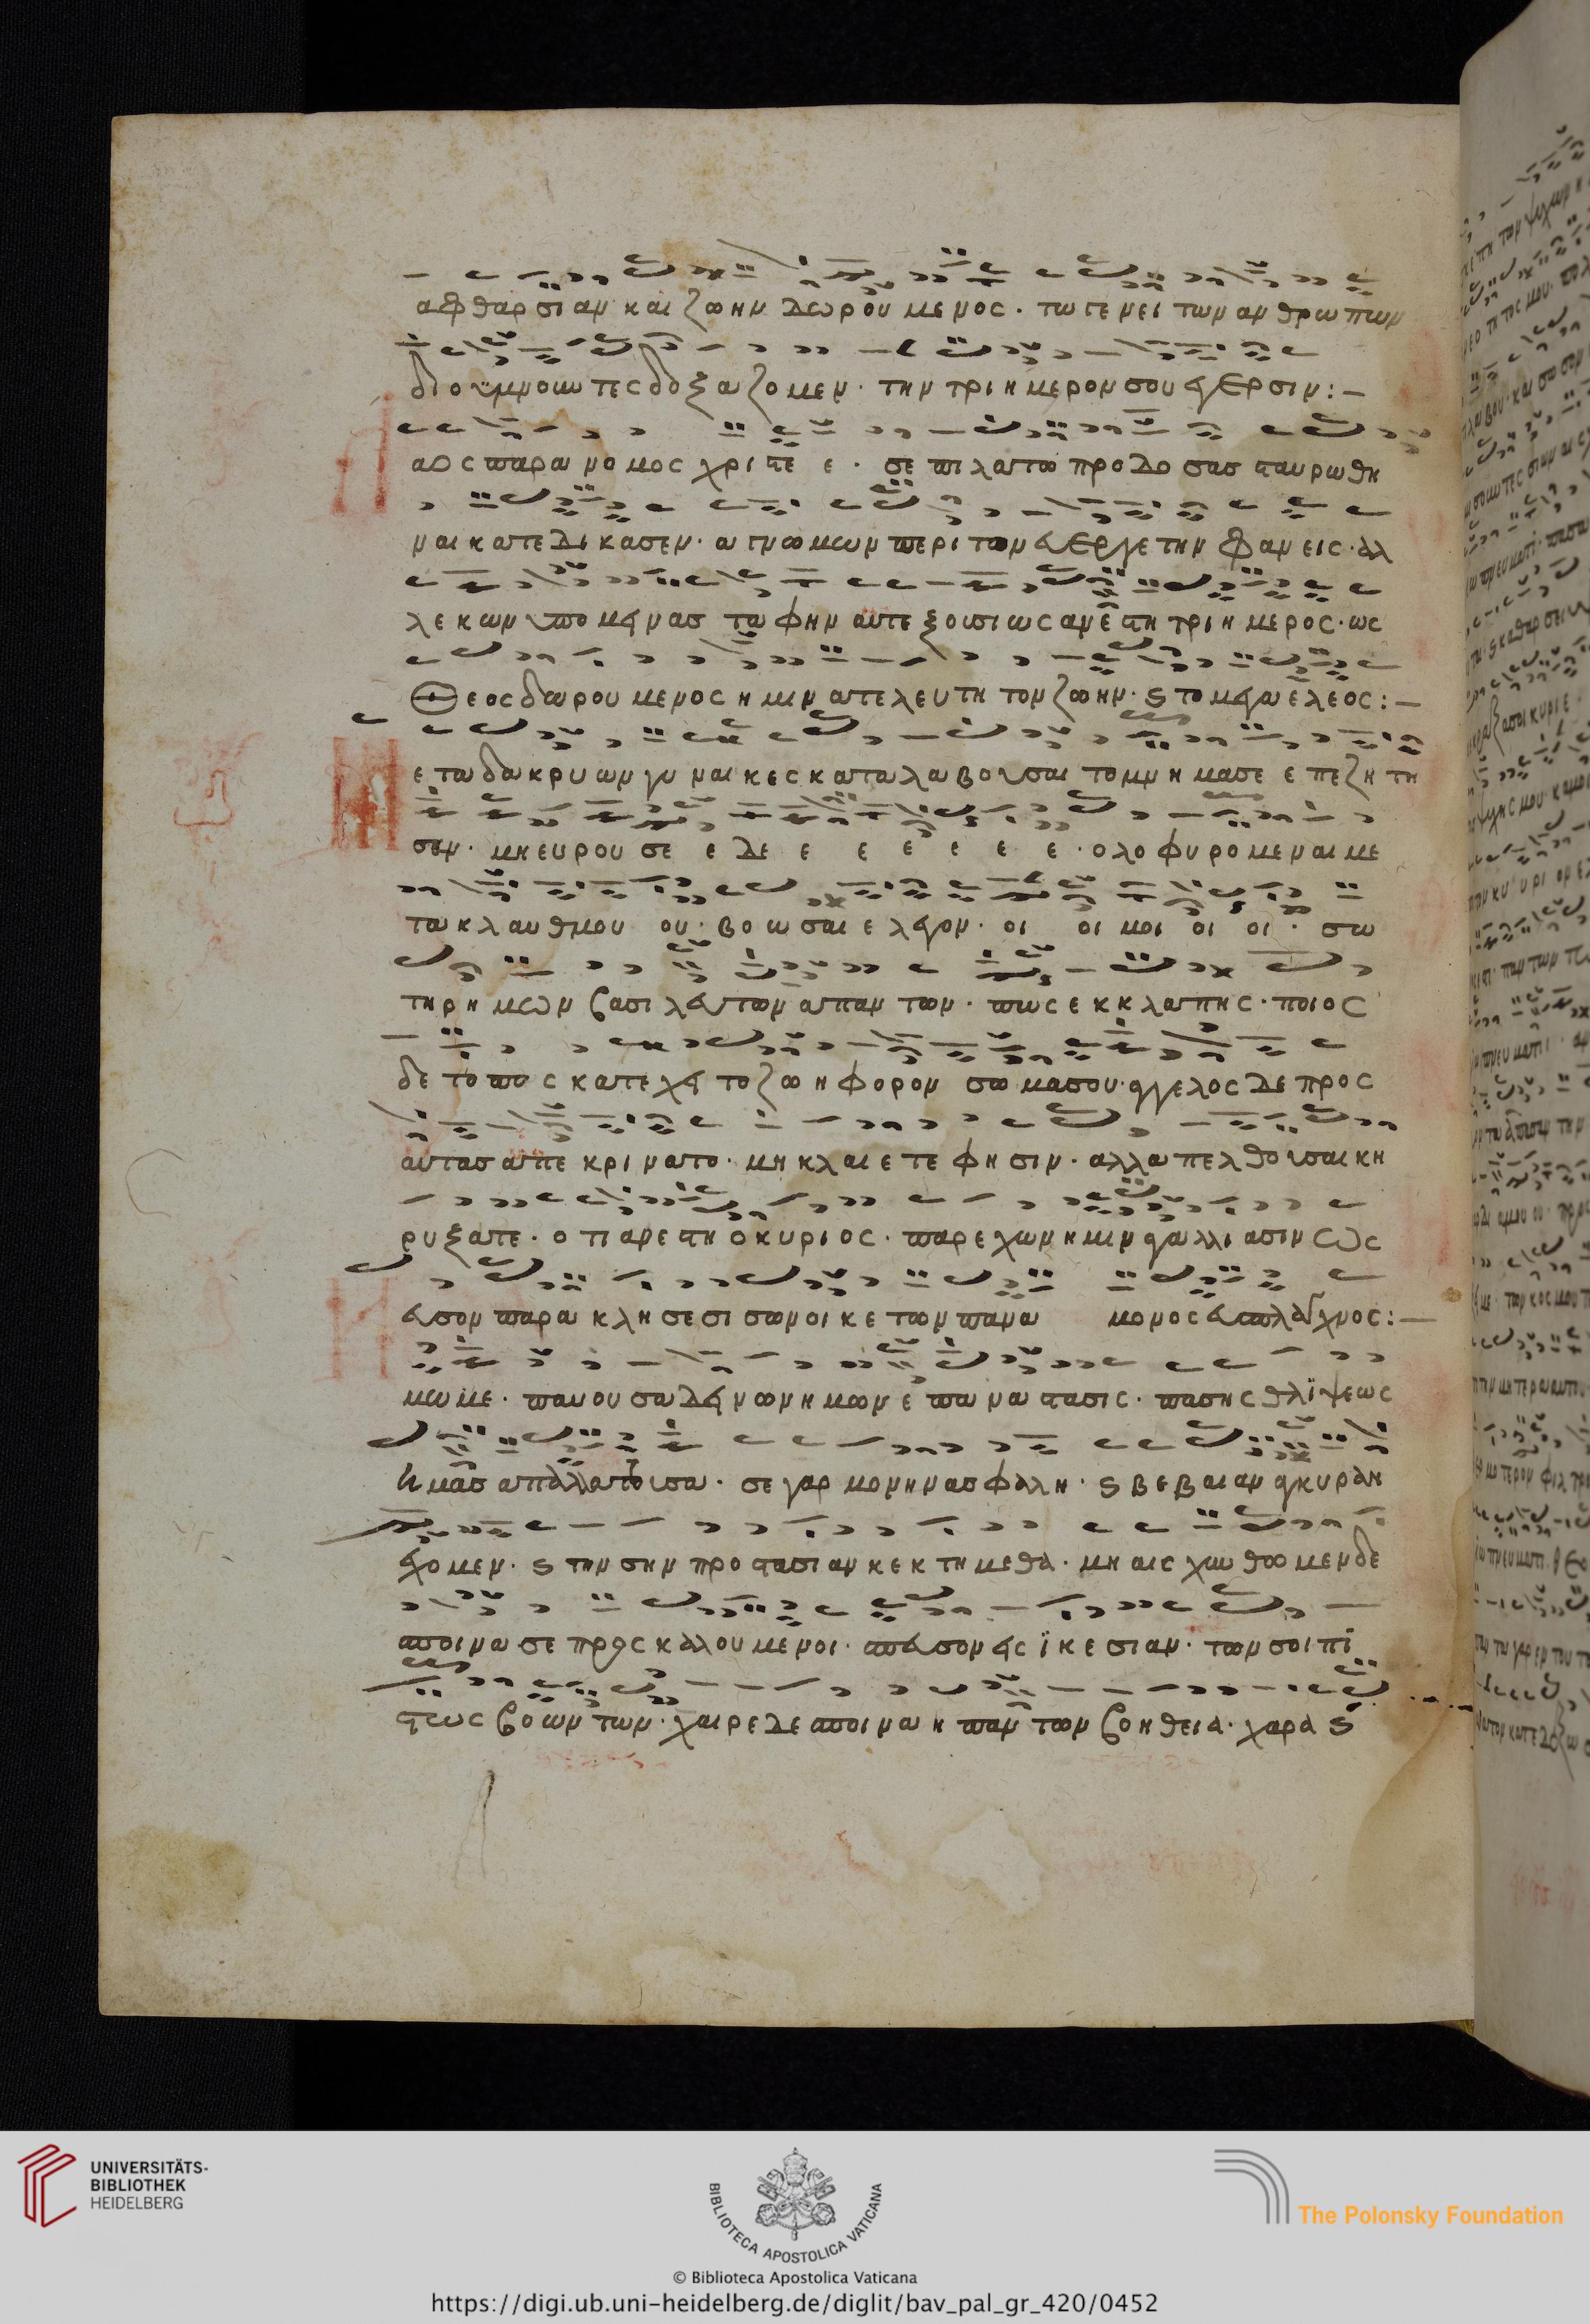 αφθαρσιαν και ζωην δωρουμενος · τω γενει των ανθρωπων
διο υμνουντες δοξαζομεν · την τριημερον σου εγερσιν : —
Λ αος παρανομος χριστε ε · σε πιλατω προδοσας σταυρωθη
ναι κατεδικασεν · αγνωμων περι των ευεργετην φανεις · αλ
λ εκων υπομεινας ταφην αυτεξουσιως ανεστη τριημερος · ως
Θεος δωρουμενος ημιν ατελευτητον ζωην · ϛ το μεγα ελεος : —
Μ ετα δακρυων γυναικες καταλαβουσαι το μνημα σε επεζητη
σαν · μη ευρουσε ε δε ε ε ε ε ε ε · ολοφυρομεναι με
τα κλαυθμου ου · βοωσαι ελεγον · οι οιμοι οι οι · σω
τηρ ημων βασιλευ των απαντων · πως εκκλαπης · ποιος
δε τοπος κατεχει το ζωηφορον σωμα σου · αγγελος δε προς
αυτας απεκρινατο · μη κλαιετε φησιν · αλλ απελθουσαι κη
ρυξατε · οτι ανεστη ο κυριος · παρεχων ημιν αγαλλιασιν ως
ευσον παρακλησεσι σων οικετων πανα μομος ευσπλαγχνος : —
μωμε · παυουσα δεινων ημων επαναστασεις · πασης θλιψεως
ημας απαλαττουσα · σε γαρ μονην ασφαλη · ϛ βεβαιαν αγκυραν
εχομεν · ϛ την σην προστασιαν κεκτημεθα · μη αισχυνθωμεν δε
σποινα σε προσκαλουμενοι · σπευσον εις ϊκεσιαν · των σοι πι
στως βοωντων · χαιρε δεσποινα η παντων βοηθεια · χαρα ϛ
UNIVERSITÄTS-
BIBLIOTHEK
HEIDELBERG
BIBLIOTECA APOSTOLICA VATICANA
The Polonsky Foundation
© Biblioteca Apostolica Vaticana
https://digi.ub.uni-heidelberg.de/diglit/bav_pal_gr_420/0452